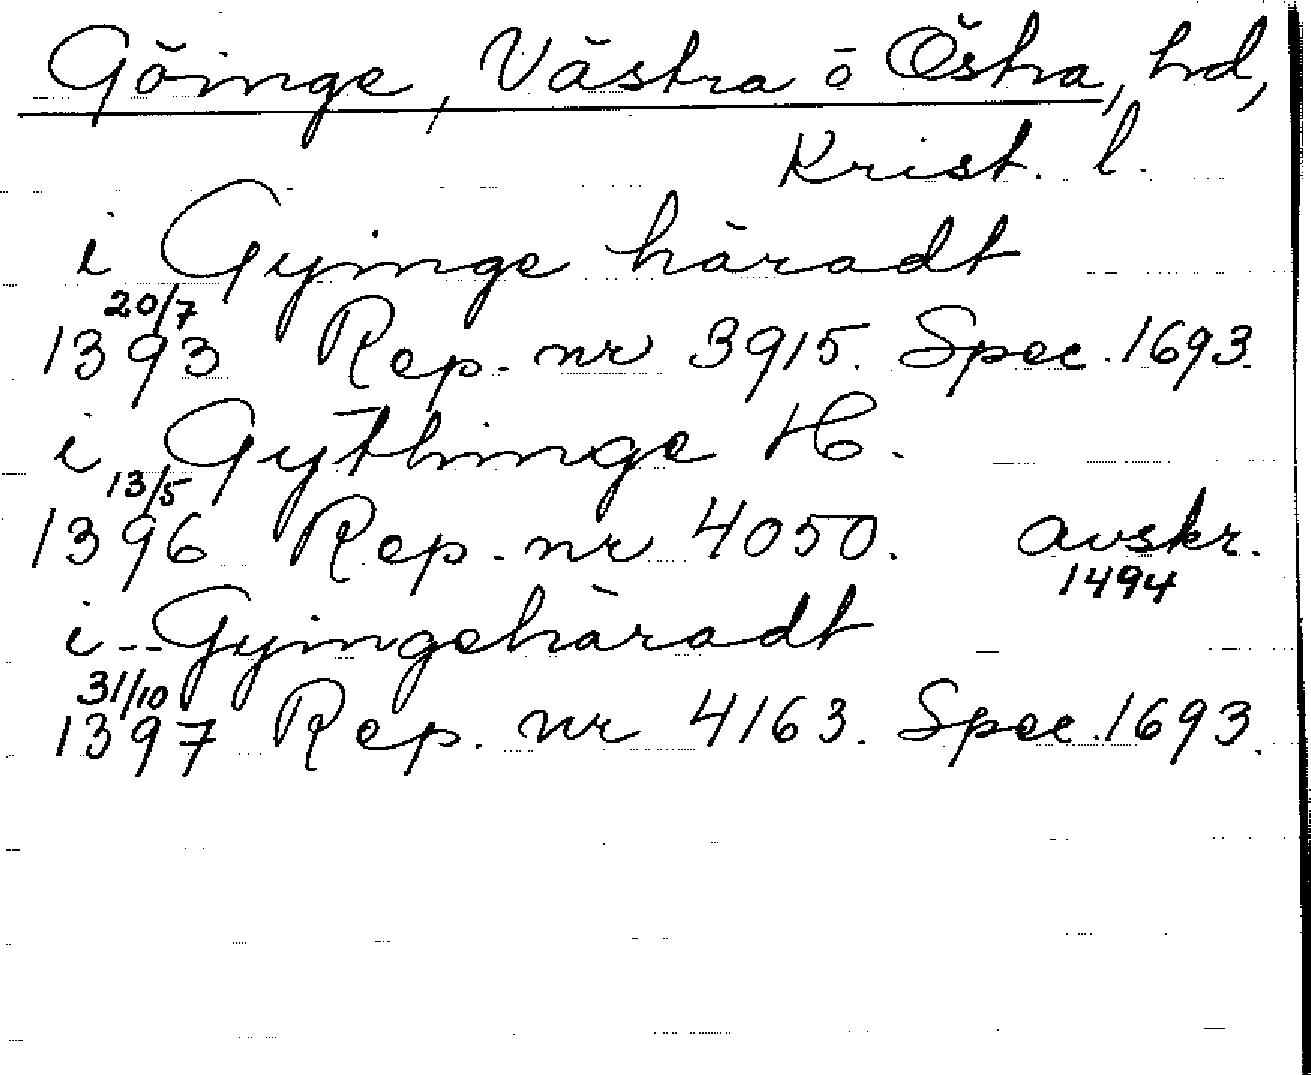 Göinge, Västra o Östra, hd,
Krist. l.
i Gyinge häradt
20/7
1393 Rep. nr 3915. Spec. 1693.
i Gythinge H.
13/5
1396 Rep. nr 4050. avskr.
1494
i Gyingehäradt
31/10
1397 Rep. nr 4163. Spec. 1693.